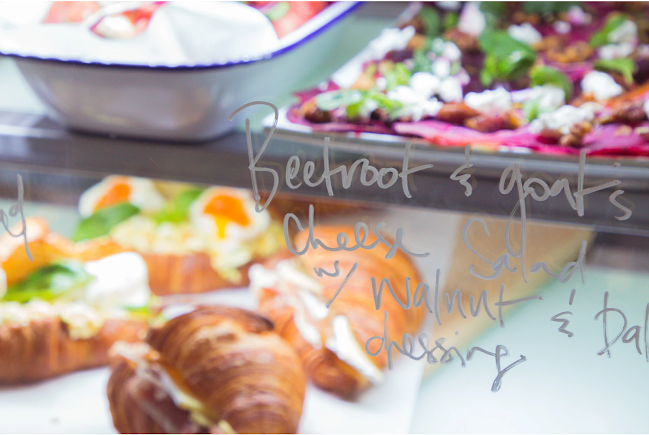 Beetroot & goat's
Cheese Salad
w/ Walnut & Dal
dressing